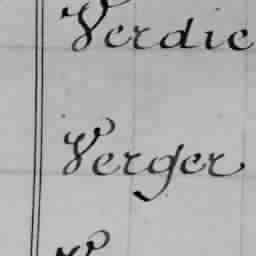 Verdie
Verger
V